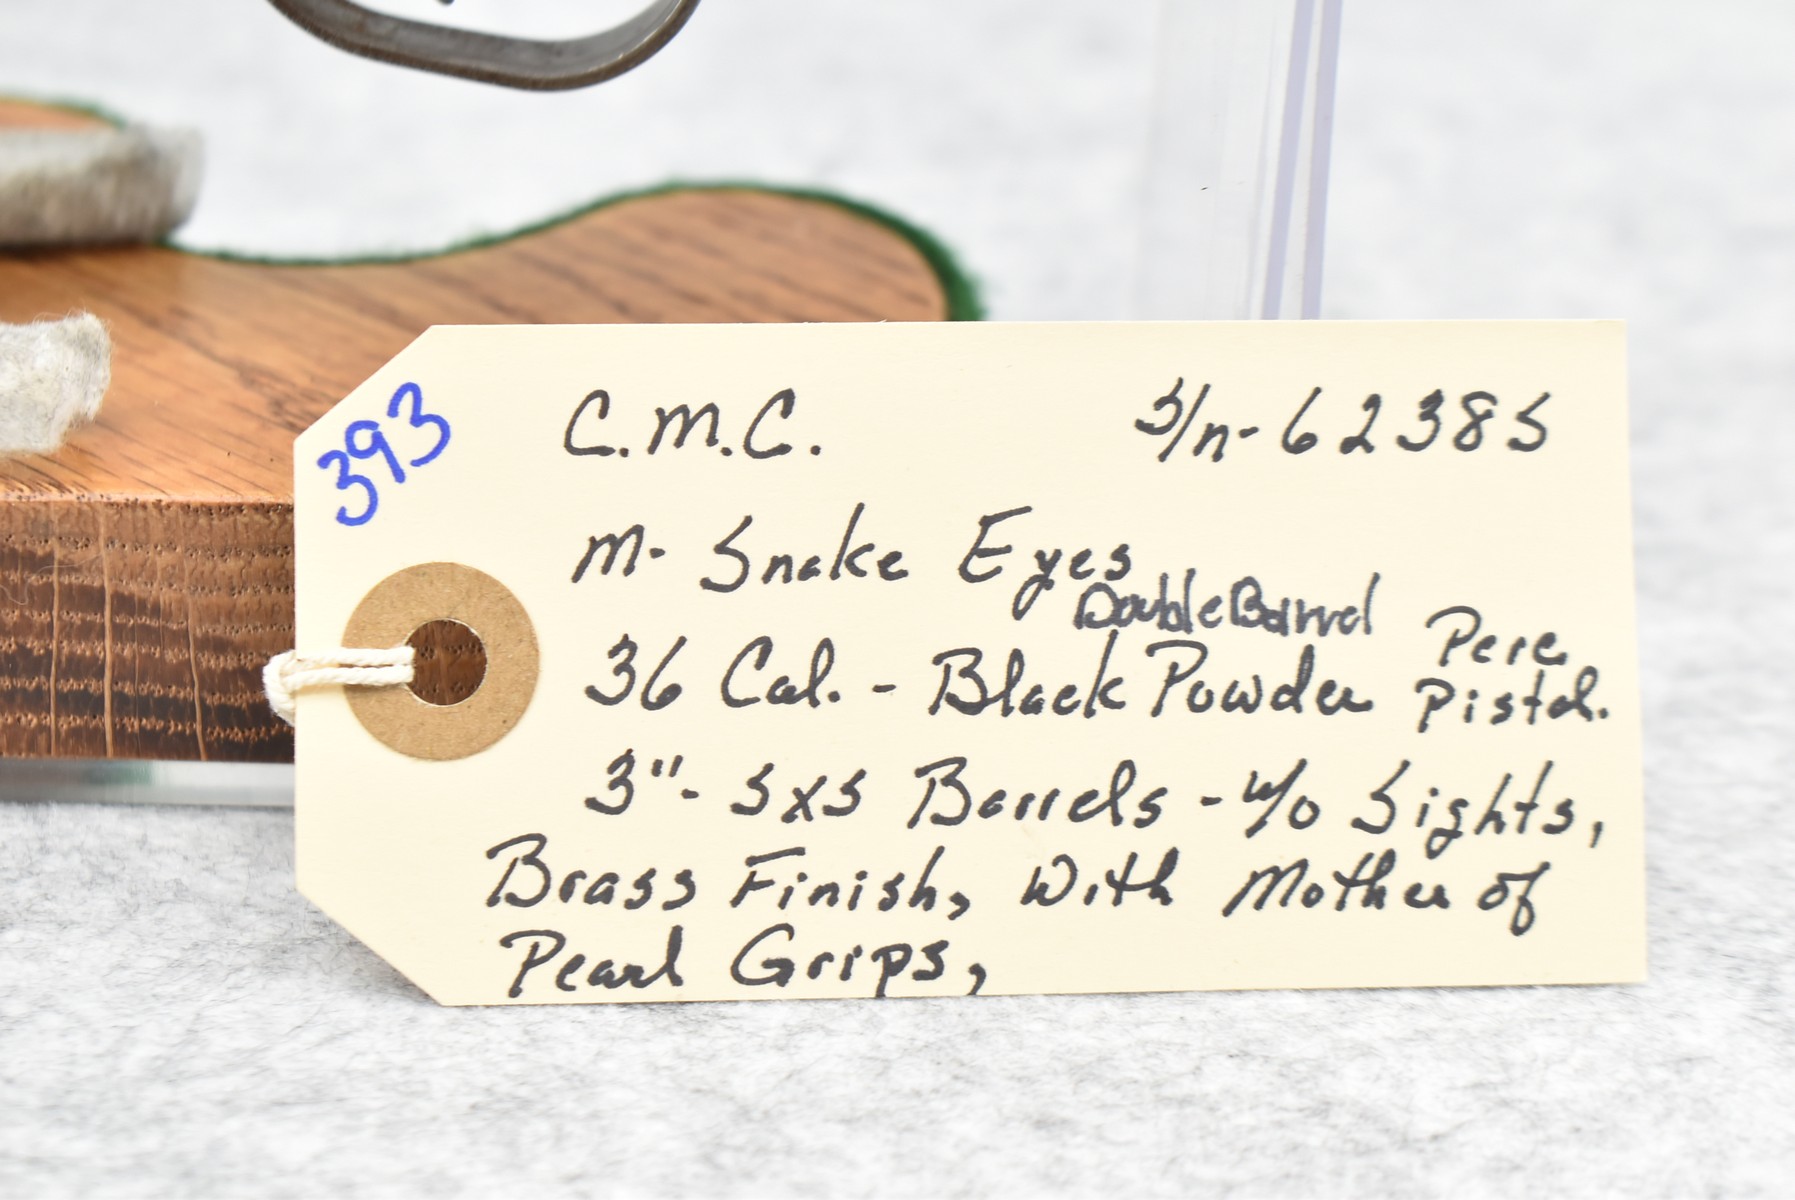 393
C.M.C. S/n- 62385
M- Snake Eyes
Double Barrel
36 Cal. - Black Powder Perc. Pistol.
3"- SxS Barrels - w/o Sights,
Brass Finish, With Mother of
Pearl Grips,